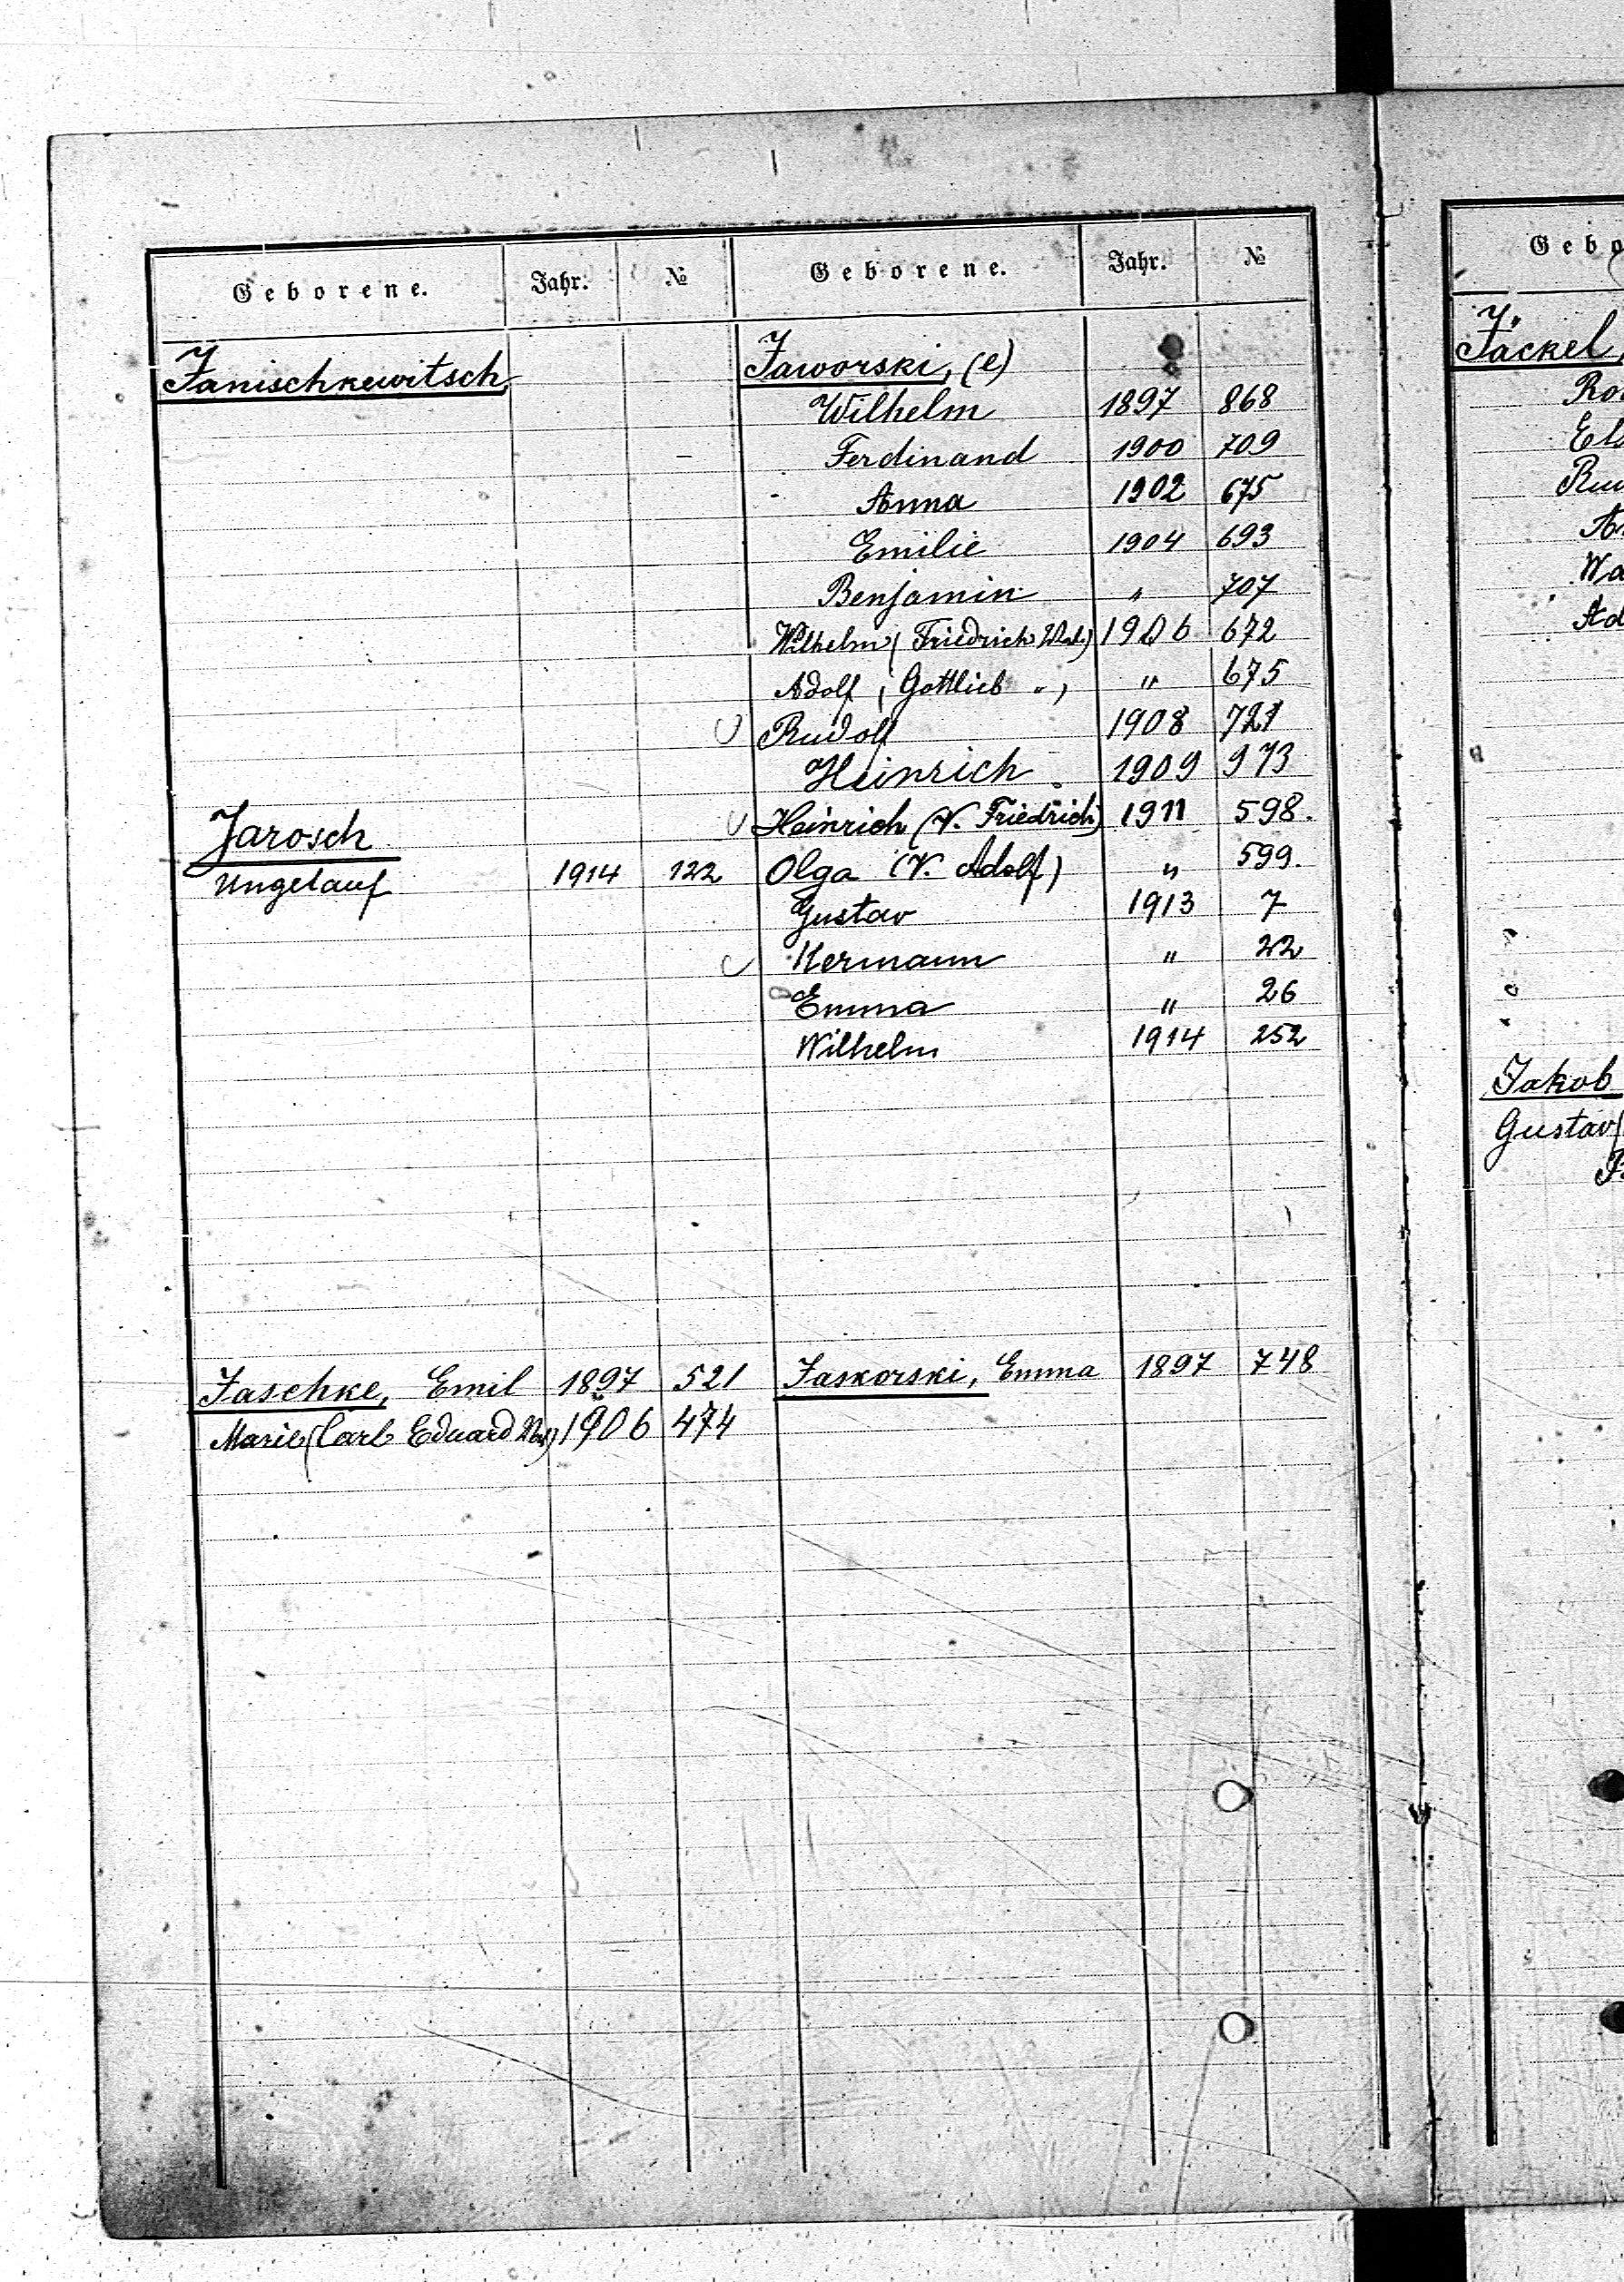 Geborene. Jahr. №
Janischkewitsch,
Jarosch
Ungetauf 1914 122
Jaschke, Emil 1897 521
Marie (Carl Eduard 1906 474
Geborene. Jahr. №
Jaworski, (e)
Wilhelm 1897 868
Ferdinand 1900 709
Anna 1902 675
Emilie 1904 693
Benjamin " 707
Wilhelm (Friedrich 1906 672
Adolf (Gottlieb ") " 675
Rudolf 1908 721
Heinrich 1909 973
Heinrich (V. Friedrich) 1911 598.
Olga (V. Adolf) " 599.
Gustav 1913 7
Hermann " 22
Emma " 26
Wilhelm 1914 252
Jaskorski, Emma 1897 748
Gebo
Jäckel,
Jakob
Gustav (